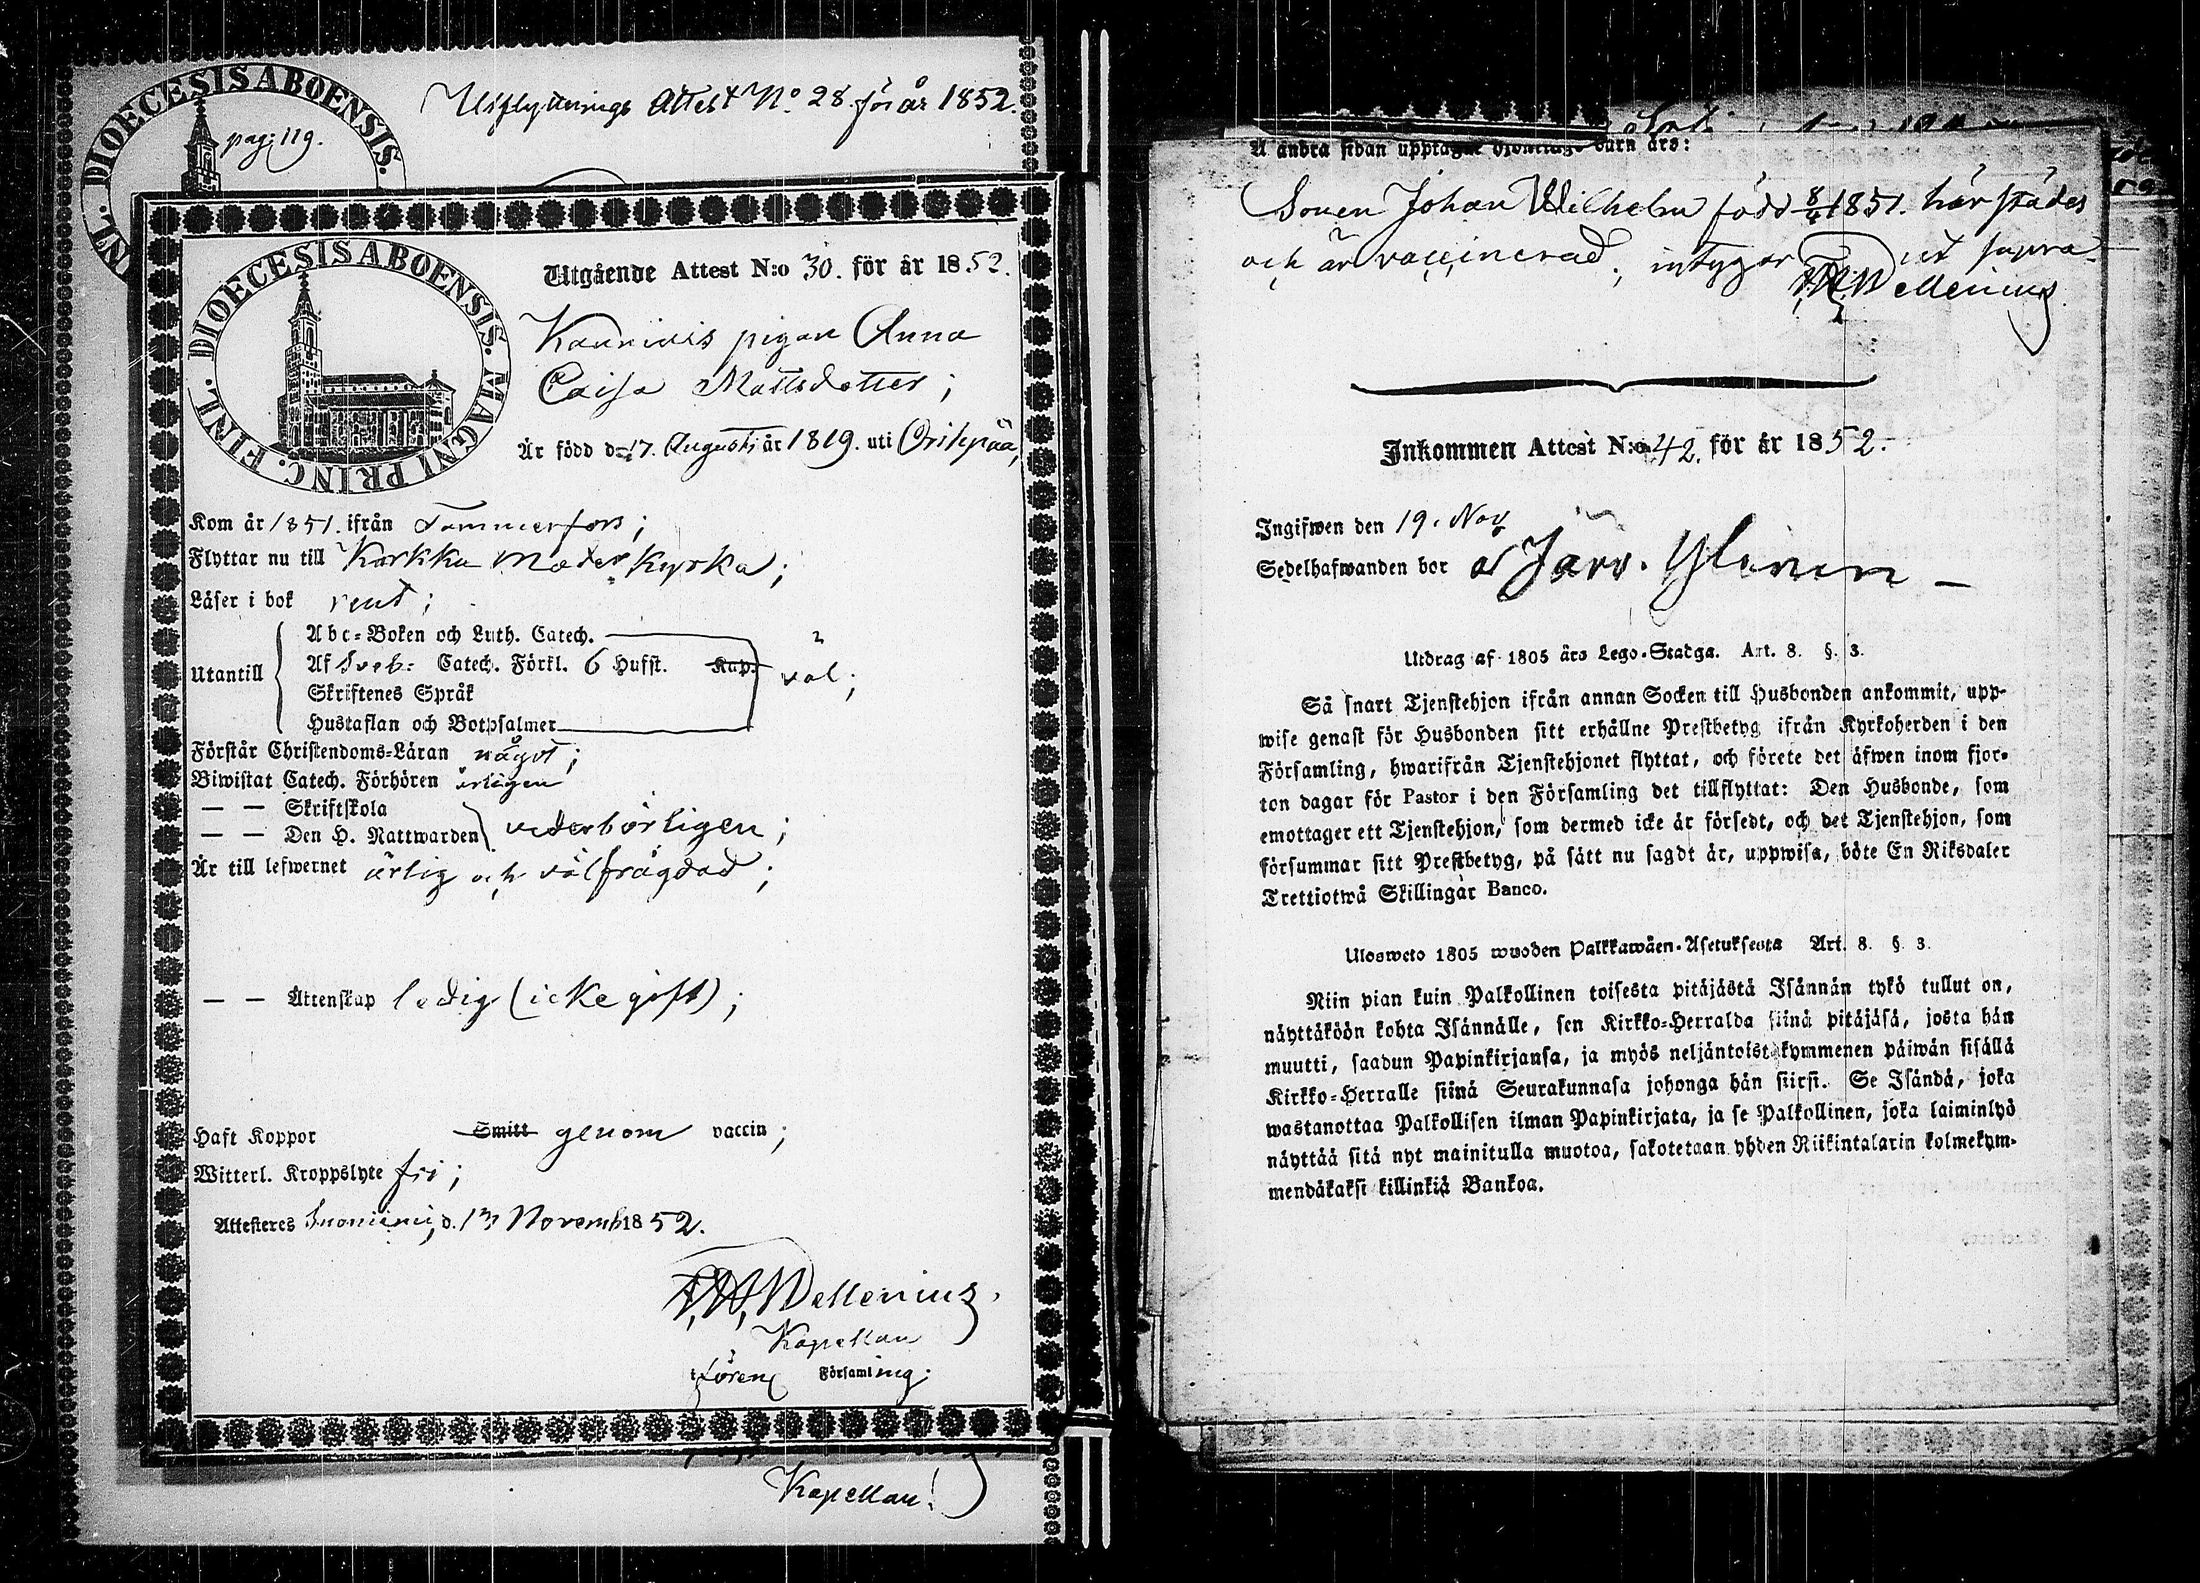 DIOECESIS ABOENSIS.
pag: 119.
Utflyttnings Attest No 28. för år 1852.
DIOECESIS ABOENSIS. MAGNI PRINC. FINL.
Utgående Attest N:o 30. för år 1852.
pigan Anna
Caisa Mattsdotter;
Är född d. 17. Augusti år 1819. uti Oripää,
Kom år 1851. ifrån Tammerfors;
Flyttar nu till Karkku Moderkyrka;
Läser i bok rent;
Utantill
Abc-Boken och Luth. Catech.
Af Sveb: Catech. Förkl. 6 Hufst. Kap. väl;
Skriftenes Språk
Hustaflan och Botpsalmer
Förstår Christendoms-Läran något;
Biwistat Catech. Förhören årligen
— — Skriftskola
— — Den H. Nattwarden vederbörligen;
Är till lefwernet ärlig och välfrägdad;
— — Ächtenskap ledig (icke gift);
Haft Koppor Smitt genom vaccin;
Witterl. Kroppslyte fri;
Attesteres Suoniemi, d. 13 Novemb 1852.
Wellenius.
Kapellan
i Lören Församling.
Kapellan!
Å andra sidan upptagne barn äro:
Sonen Johan Wilhelm född 8/4 1851. härstädes
och är vaccinerad, intygar ut supra
Wellenius
Inkommen Attest N:o 42. för år 1852.
Ingifwen den 19. Nov
Sedelhafwanden bor å Järv. Ylinen —
Utdrag af 1805 års Lego-Stadga. Art. 8. §. 3.
Så snart Tjenstehjon ifrån annan Socken till Husbonden ankommit, upp-
wise genast för Husbonden sitt erhållne Prestbetyg ifrån Kyrkoherden i den
Församling, hwarifrån Tjenstehjonet flyttat, och förete det äfwen inom fjor-
ton dagar för Pastor i den Församling det tillflyttat: Den Husbonde, som
emottager ett Tjenstehjon, som dermed icke är försedt, och det Tjenstehjon, som
försummar sitt Prestbetyg, på sätt nu sagdt är, uppwisa, böte En Riksdaler
Trettiotwå Skillingar Banco.
Ulosweto 1805 wuoden Palkkawäen-Asetuksesta Art. 8. §. 3.
Niin pian kuin Palkollinen toisesta pitäjästä Isännän tykö tullut on,
näyttäköön kohta Isännälle, sen Kirkko-Herralda siinä pitäjäsä, josta hän
muutti, saadun Papinkirjansa, ja myös neljäntoistakymmenen päiwän sisällä
Kirkko-Herralle siinä Seurakunnasa johonga hän siirsi. Se Isändä, joka
wastanottaa Palkollisen ilman Papinkirjata, ja se Palkollinen, joka laiminlyö
näyttää sitä nyt mainitulla muotoa, sakotetaan yhden Riikintalarin kolmekym-
mendäkaksi killinkiä Bankoa.